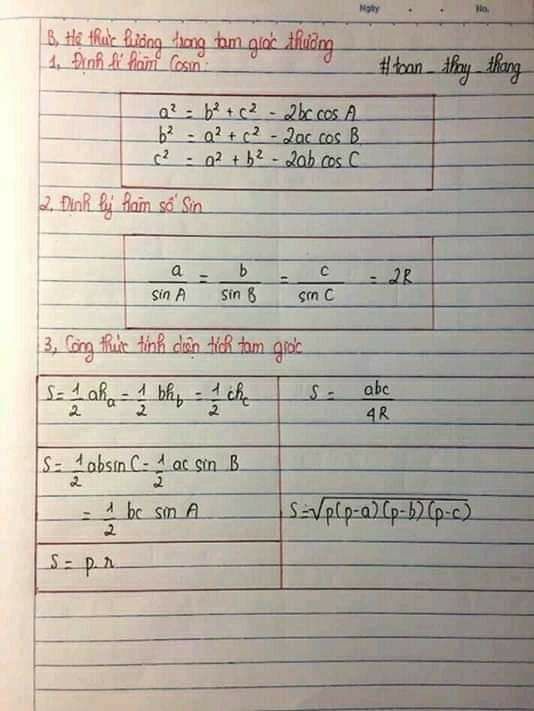 Ngày . . No.
B, Hệ thức lượng trong tam giác thường
1, Định lí hàm Cosin.
#toan_thay_thang
a² = b² + c² - 2bc cos A
b² = a² + c² - 2ac cos B
c² = a² + b² - 2ab cos C
2, Định lý hàm số Sin
a/sin A = b/sin B = c/sin C = 2R
3, Công thức tính diện tích tam giác
S = 1/2 ahₐ = 1/2 bh_b = 1/2 ch_c
S = abc/4R
S = 1/2 absin C = 1/2 ac sin B
= 1/2 bc sin A
S = √p(p-a)(p-b)(p-c)
S = p.r